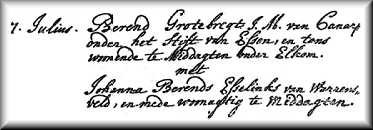 7. Julius. Berend Grotebregt J. M. van Canap
onder het Stift van Essen, en tans
womende te Middagten onder Elkom.
met
Johanna Berends Esselinks van Warrens,
veld, en mede womagtig te Middagten.